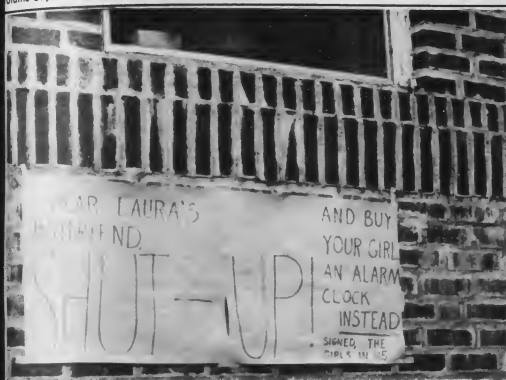 LAURA'S
SHUT-UP!
AND BUY
YOUR GIRL
AN ALARM
CLOCK
INSTEAD
SIGNED, THE
GIRLS IN